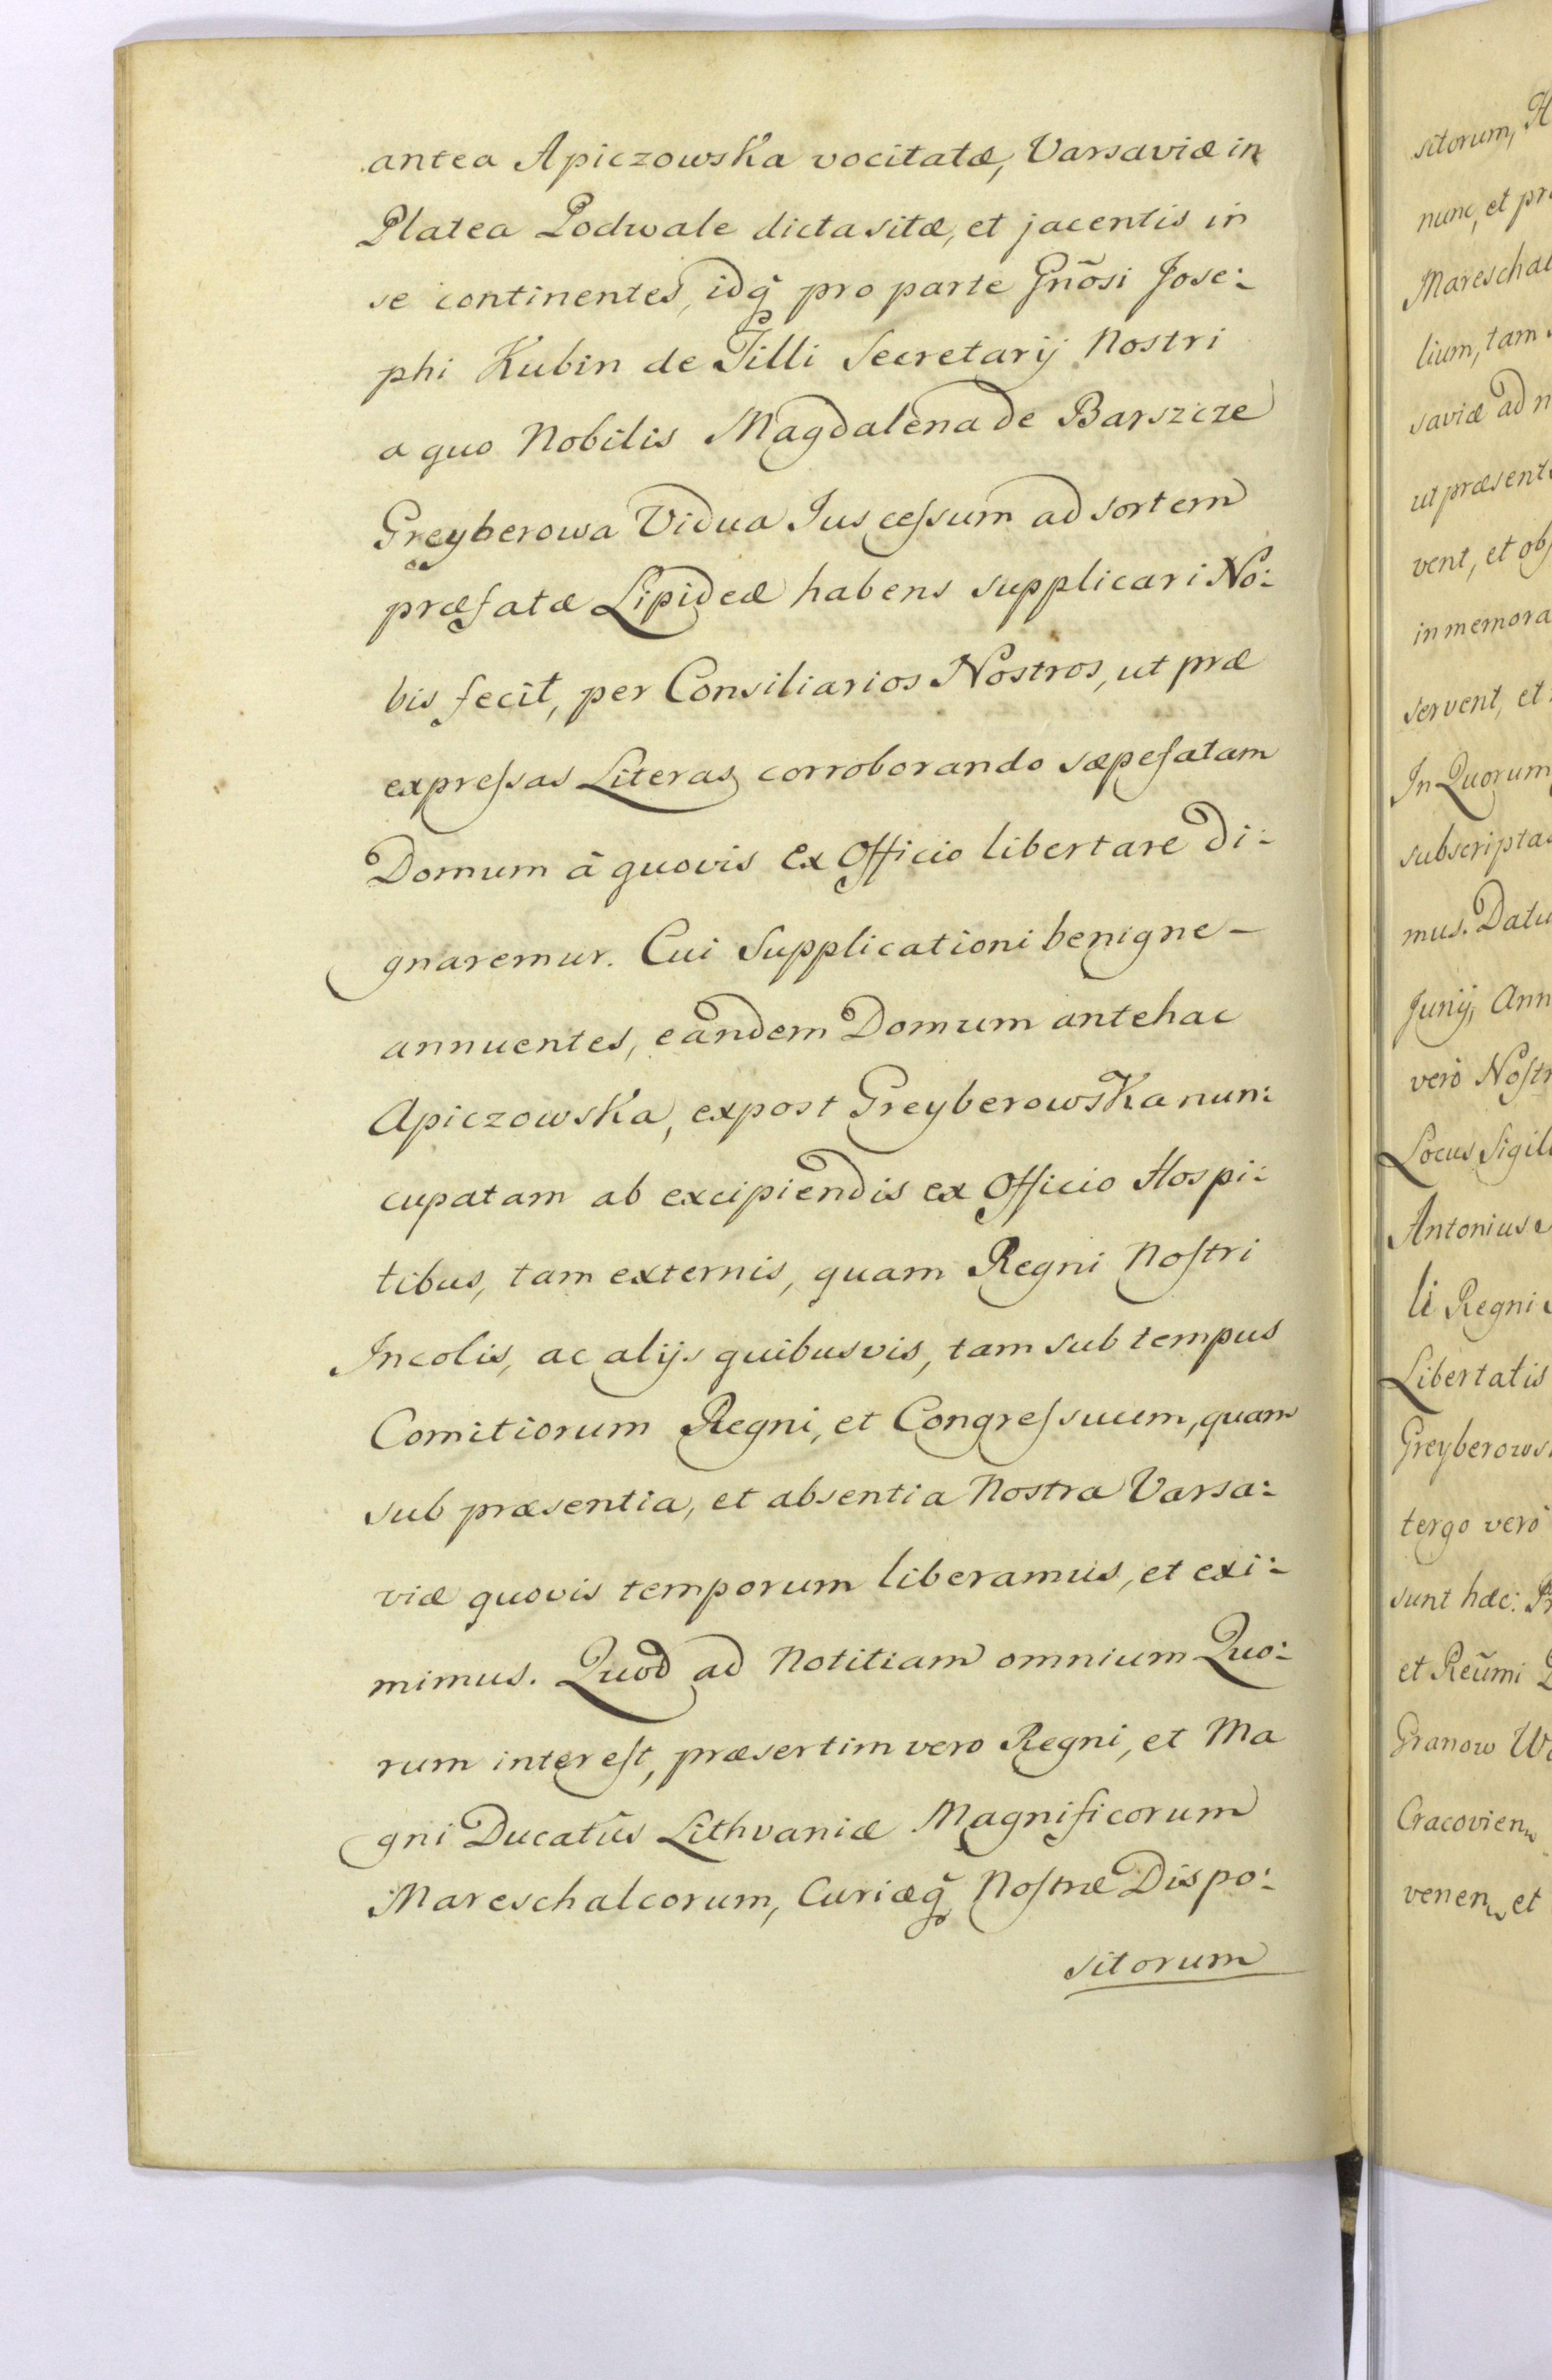 antea Apiczowska vocitatæ, Varsaviæ in
Platea Podwale dicta sitæ, et jacentis in
se continentes, idq̃ pro parte Gñosi Jose:
phi Kubin de Tilli Secretarij Nostri
a quo Nobilis Magdalena de Barszcze
Greyberowa Vidua Jus ceſsum ad sortem
præfatæ Lipideæ habens supplicari No:
bis fecit, per Consiliarios Nostros, ut præ
expreſsas Literas corroborando sæpefatam
Domum â quovis ex Officio libertare di:
gnaremur. Cui Supplicationi benigne –
annuentes, eandem Domum antehac
Apiczowska, expost Greyberowska nun:
cupatam ab excipiendis ex Officio Hospi:
tibus, tam externis, quam Regni Noſtri
Incolis, ac alijs quibusvis, tam sub tempus
Comitiorum Regni, et Congreſsuum, quam
sub præsentia, et absentia Nostra Varsa:
viæ quovis temporum liberamus, et exi:
mimus. Quod ad Notitiam omnium Quo:
rum intereſt, præsertim vero Regni, et Ma
gni Ducatûs Lithvaniæ Magnificorum
Mareschalcorum, Curiæq̃ Noſtræ Dispo:
sitorum
sitorum, H
nunc, et pr
Mareschal
lium, tam
saviæ ad n
ut præsent
vent, et obſ
in memora
servent, et
In Quorum
subscripta
mus. Datu
Junij, Ann
verò Noſtr
Locus Sigil
Antonius
li Regni
Libertatis
Greyberows
tergo verò
sunt hæc: Pr
et Reũmi
Granow W
Cracovien
venen et